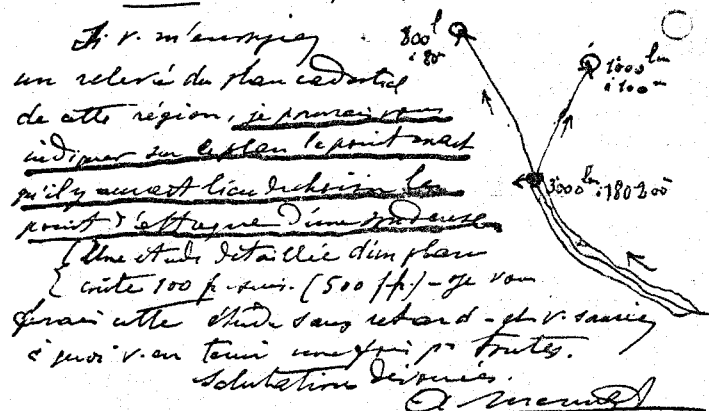 Si v. m'envoyiez
un relevé du plan cadastral
de cette région, je pourrais vous
indiquer sur le plan le point exact
qu'il y aurait lieu de choisir
point d'attaque d'une sondeuse
(Une étude detaillée d'un plan
coûte 100 fr. suis. (500 f.f.) - Je vous
ferais cette étude sans retard - et v. sauriez
à quoi v. en tenir une fois pr toutes.
Salutations dévouées.
800 l
à 80
1000 lm
à 100 m
3000 lm à 180 200